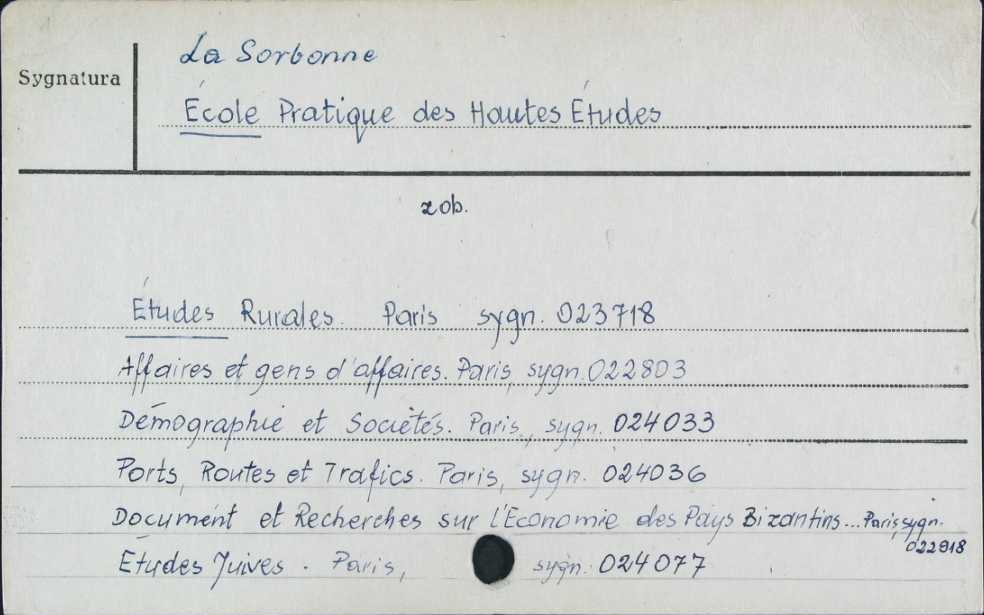 La Sorbonne
Sygnatura
École Pratique des Hautes Études
zob.
Études Rurales. Paris sygn. 023718
Affaires et gens d'affaires. Paris, sygn. 022803
Démographie et Sociétés. Paris, sygn. 024033
Ports, Routes et Trafics. Paris, sygn. 024036
Document et Recherches sur l'Economie des Pays Bizantins... Paris, sygn.
022918
Études Juives. Paris, sygn. 024077